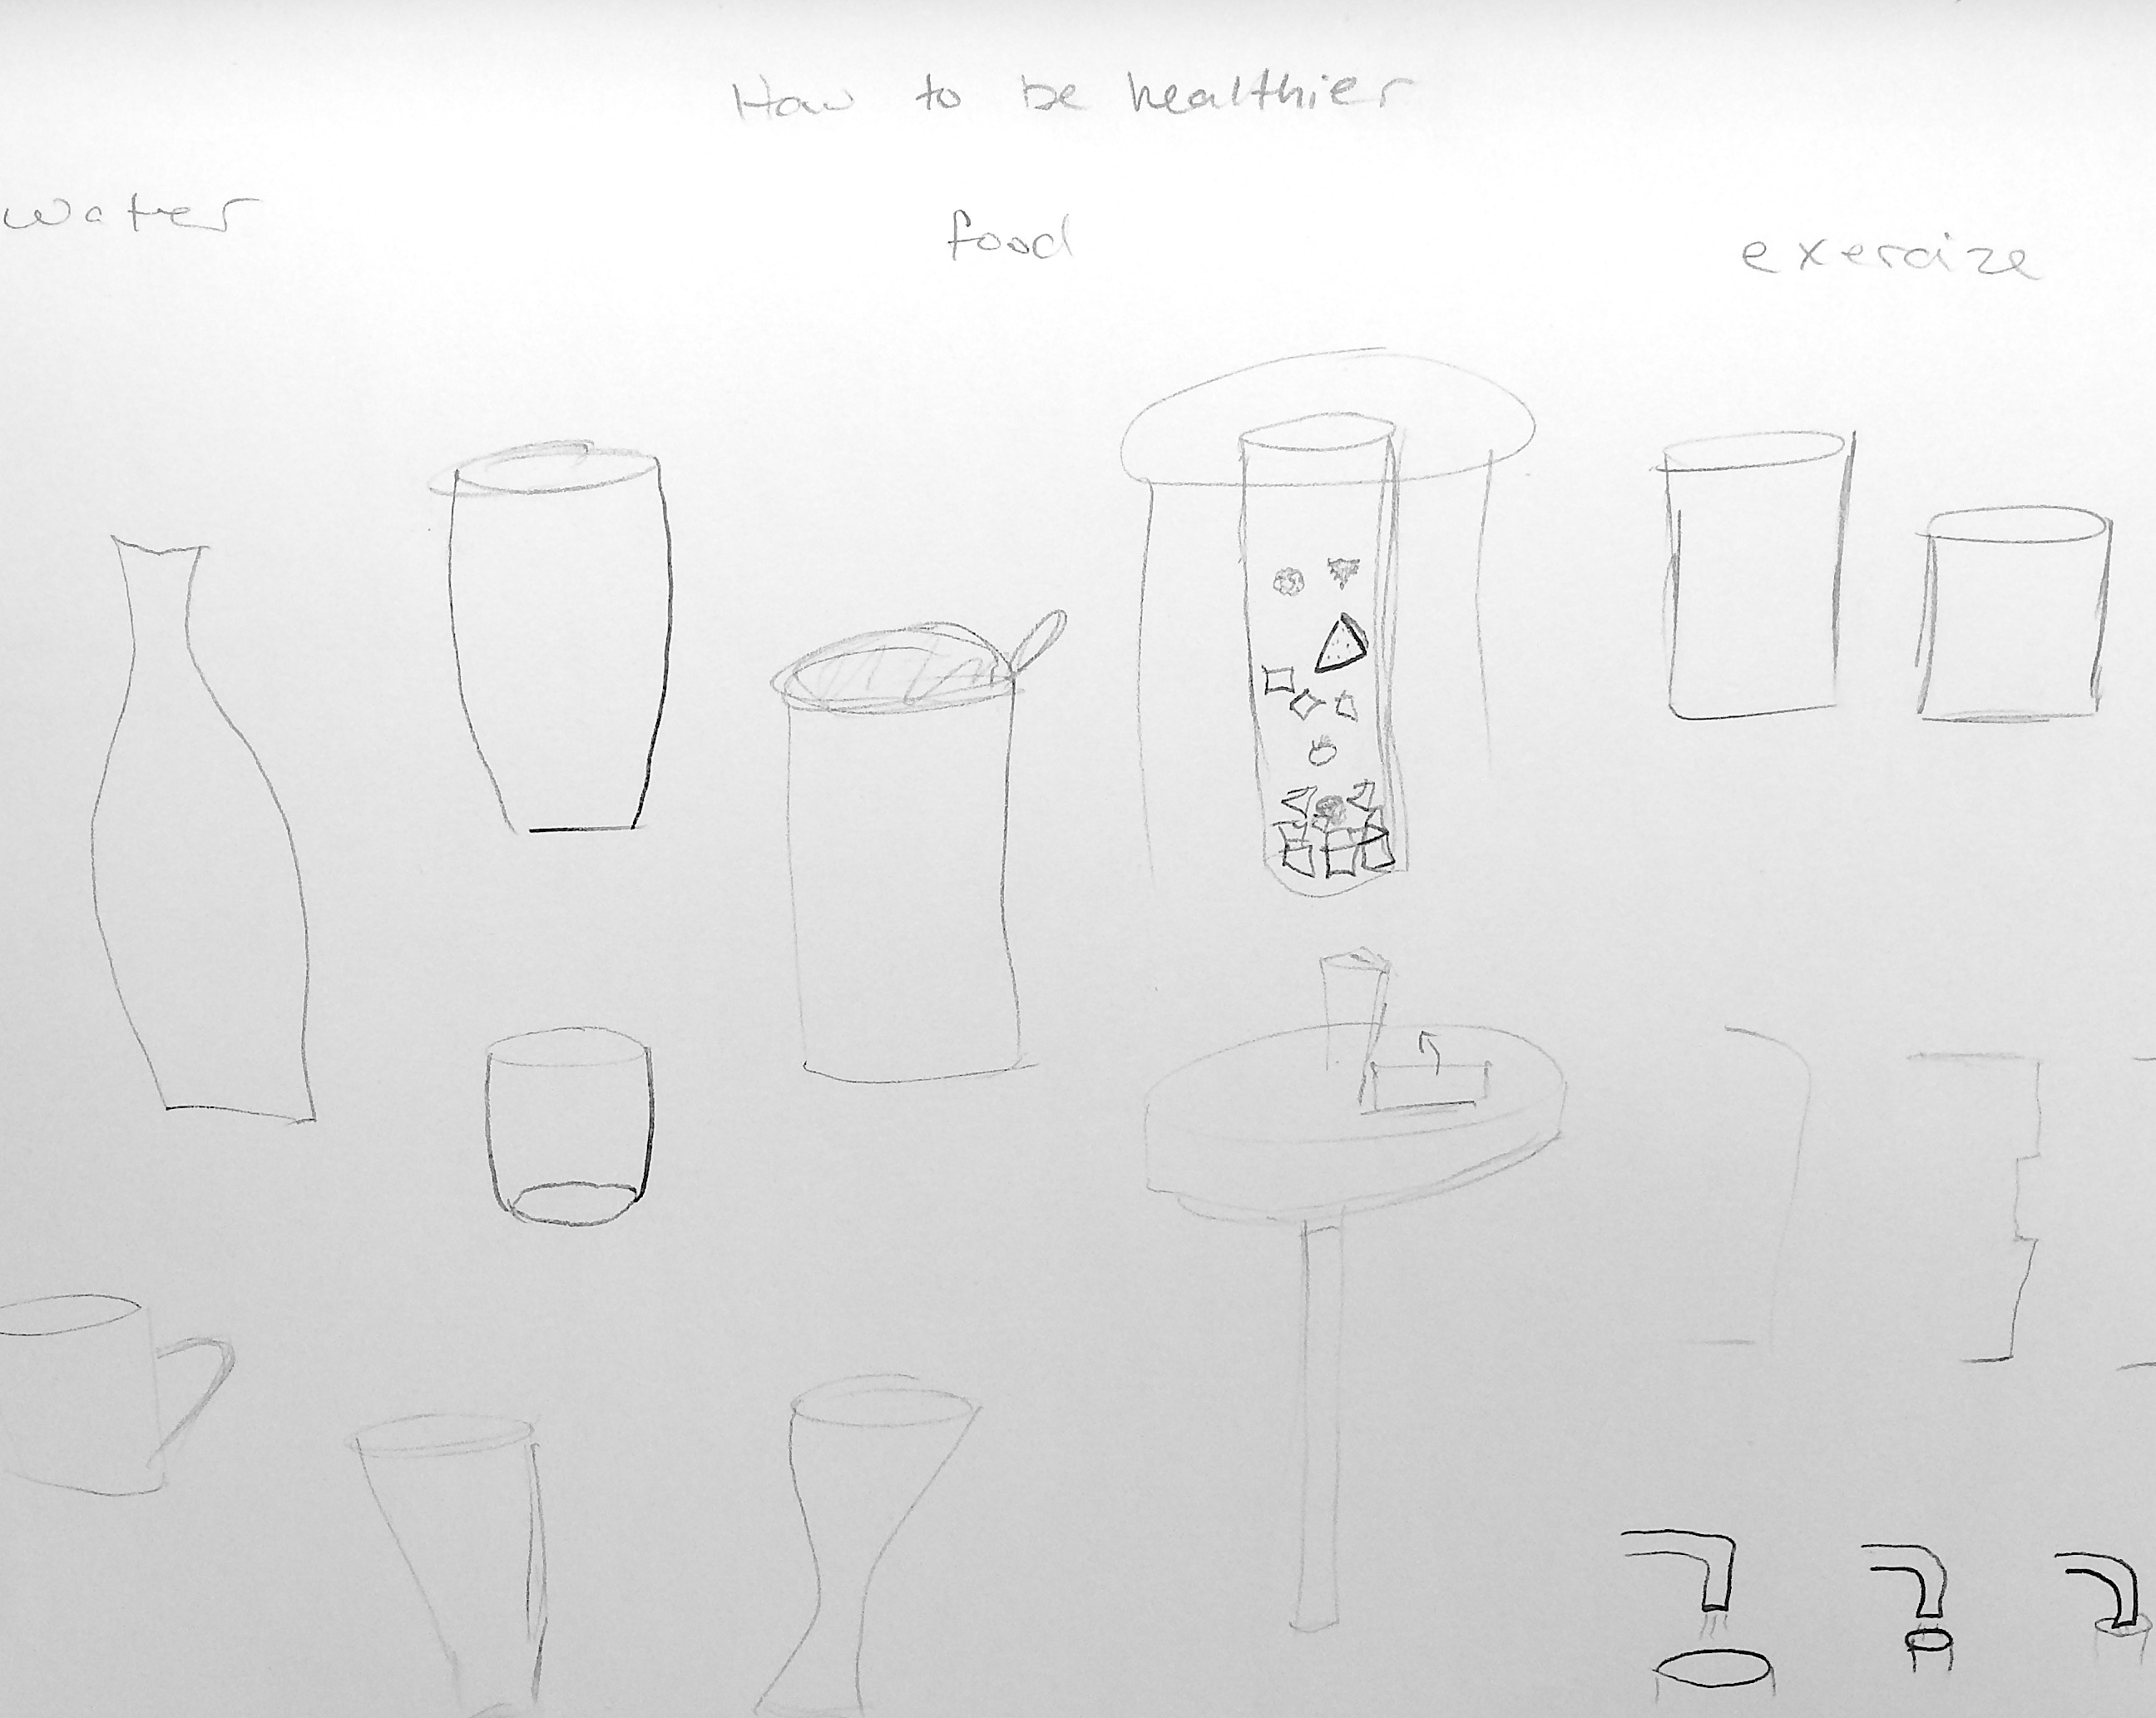 How to be healthier
water
food
exercize